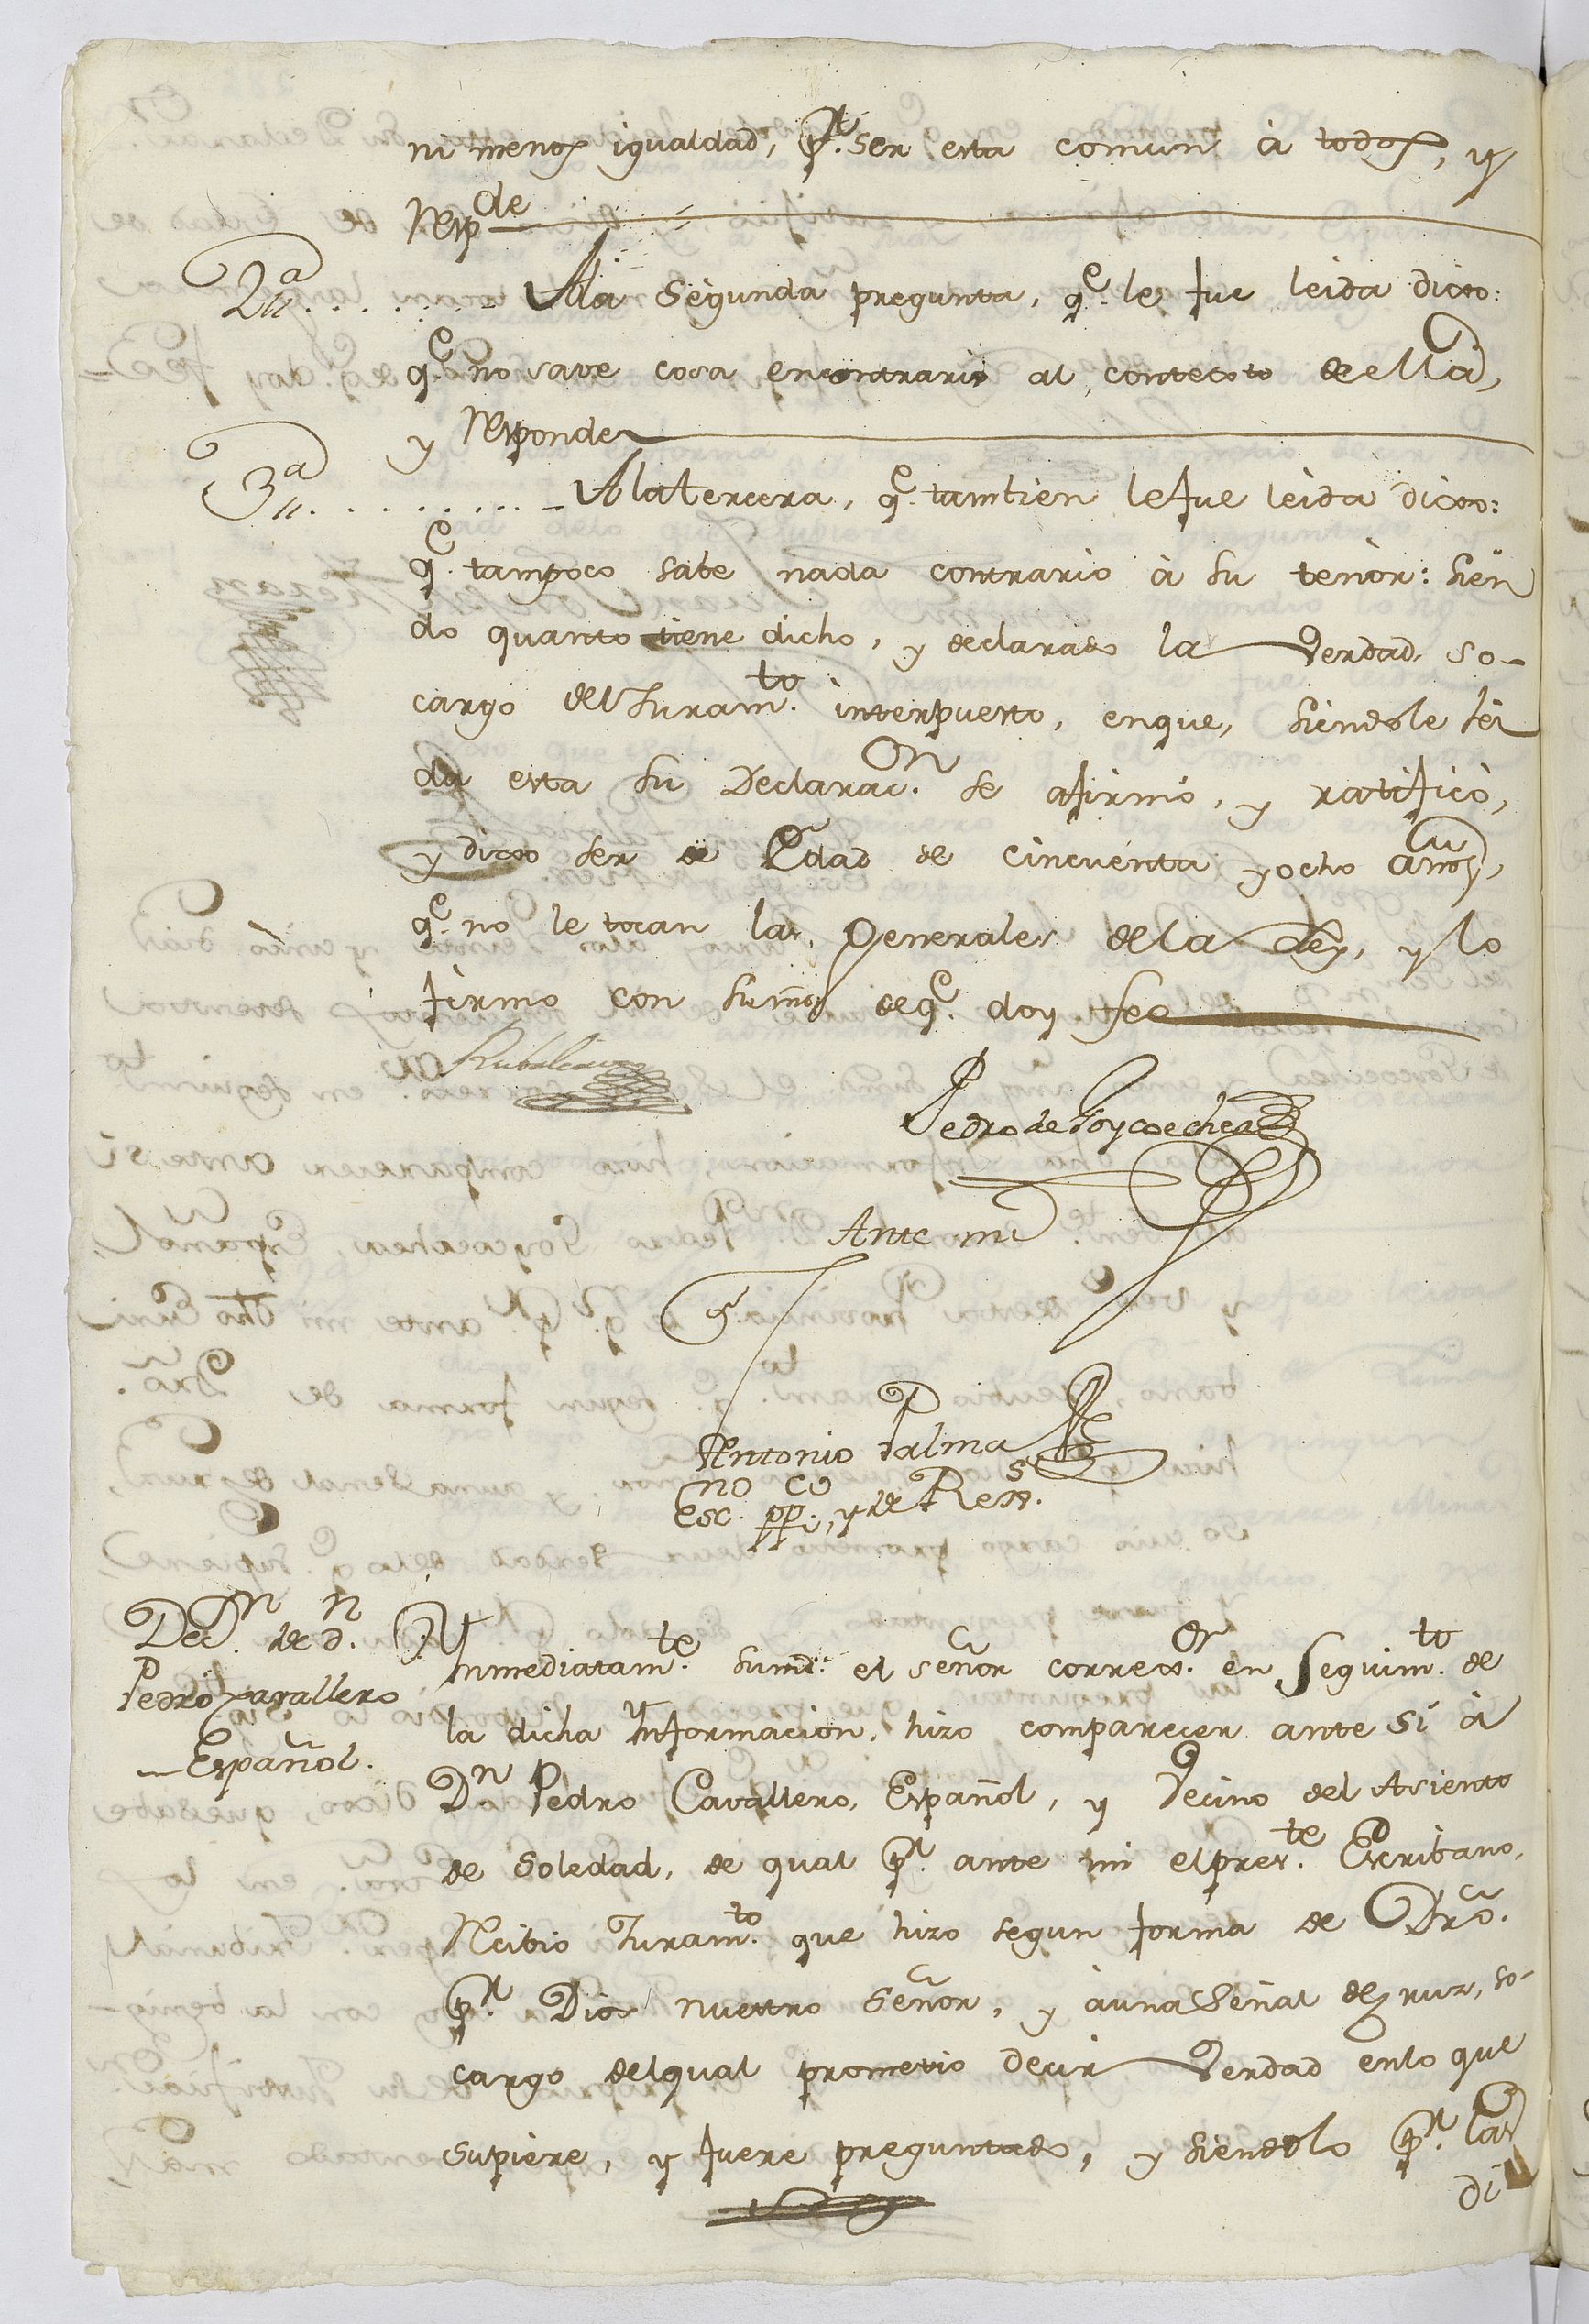 ni menos igualdad, pr. ser esta comun à todos, y
respde
2a Ala Segunda pregunta, qe. le fue leida dixo:
qe. no save cosa encontrario al contexto de ella,
y responde
3a Ala tercera, qe. tambien le fue leida dixo:
qe. tampoco sabe nada contrario à su tenor: sien
do quanto tiene dicho, y declarado la Verdad, so-
cargo del Juramto. interpuesto, en que, siendole lei
da esta su Declaracon. se afirmó, y ratificó,
y dixo ser de Edad de cincuenta y ocho años,
qe. no le tocan las Generales de la Ley, y lo
firmo con su md de qe. doy fee
Rubalcava
Pedro de Goycoechea
Ante mi
Antonio Palma
Escno. ppco., y de Ress.
Decn. de dn.
Pedro Cavallero
Español.
Ynmediatamte. su md. el señor corregor. en Seguimto. de
la dicha Ynformacion, hizo comparecer ante Si à
Dn Pedro Cavallero, Español, y Vecino del Asiento
de Soledad, de qual pr. ante mi el preste. Escribano,
Rcibio Juramto. que hizo segun forma de Dro.
pr. Dios nuestro Señor, y à una Señal de cruz, so-
cargo del qual prometio decir Verdad en lo que
supiere, y fuere preguntado, y siendolo pr. las
di